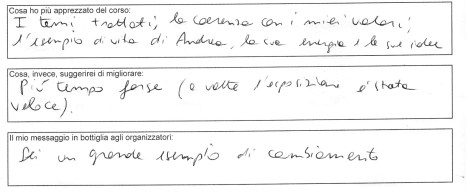 Cosa ho più apprezzato del corso:
I temi trattati, la coerenza con i miei valori,
l'esempio di vita di Andrea, la sua energia e le sue idee
Cosa, invece, suggerirei di migliorare:
Più tempo forse (a volte l'esposizione è stata
veloce).
Il mio messaggio in bottiglia agli organizzatori:
Sei un grande esempio di cambiamento